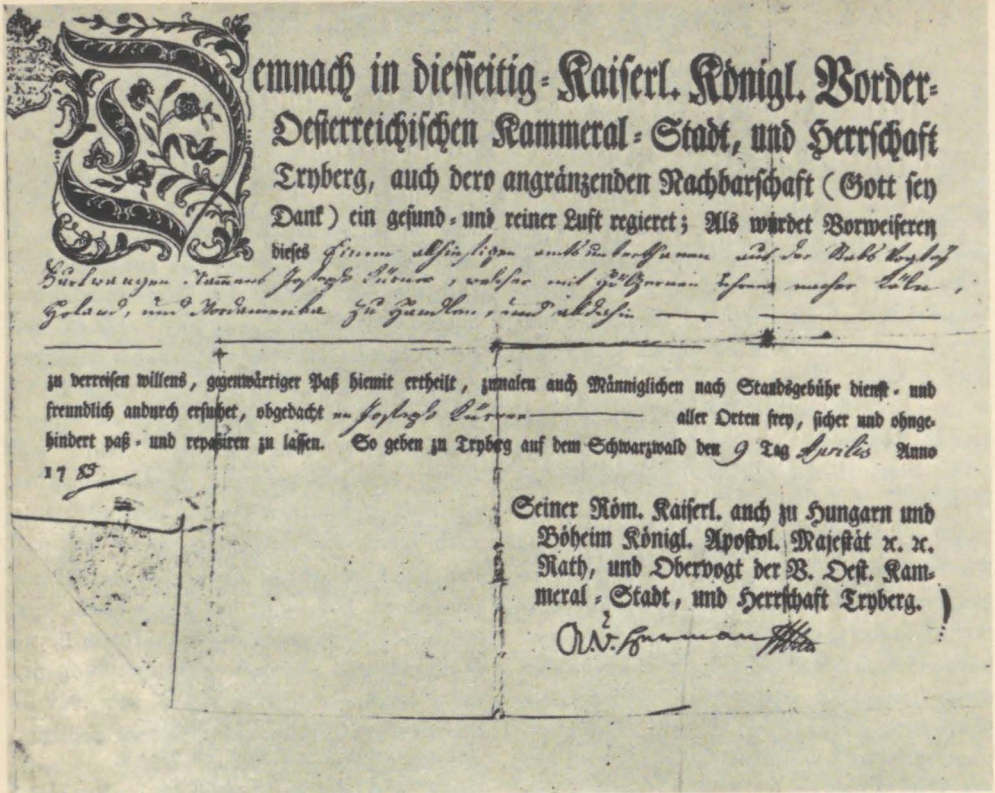 Demnach in diesseitig-Kaiserl. Königl. Vorder-
Oesterreichischen Kammeral-Stadt, und Herrschaft
Tryberg, auch dero angränzenden Nachbarschaft (Gott sey
Dank) ein gesund- und reiner Luft regieret; Als würdet Vorweiseren
dieses Einem amts unterthanen auf der Vogtey
Namens Joseph Kürner, welcher mit hültzernen Uhren
Holand, und Nordamerika zu Handlen, und
zu verreisen willens, gegenwärtiger Paß hiemit ertheilt, zumalen auch Männiglichen nach Standsgebühr dienst- und
freundlich andurch ersuchet, obgedacht en Joseph Kürner aller Orten frey, sicher und ohnge-
hindert paß- und repaßiren zu lassen. So geben zu Tryberg auf dem Schwarzwald den 9 Tag Aprilis Anno
17 89
Seiner Röm. Kaiserl. auch zu Hungarn und
Böheim Königl. Apostol. Majestät ꝛc. ꝛc.
Rath, und Obervogt der V. Oest. Kam-
meral-Stadt, und Herrschaft Tryberg.